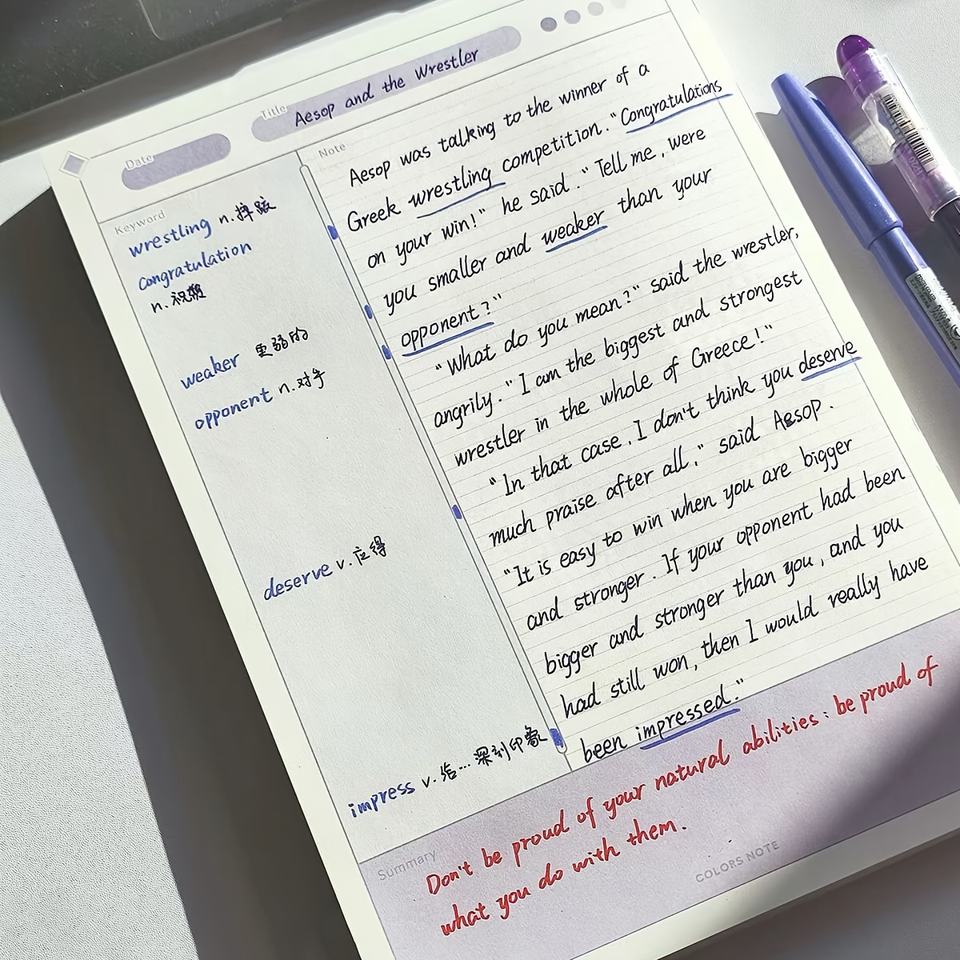 Title
Aesop and the Wrestler
Date
Keyword
wrestling n.摔跤
congratulation
n.祝贺
weaker 更弱的
opponent n.对手
deserve v.应得
impress v.给…深刻印象
Note
Aesop was talking to the winner of a
Greek wrestling competition. "Congratulations
on your win!" he said. "Tell me, were
you smaller and weaker than your
opponent?"
"What do you mean?" said the wrestler,
angrily. "I am the biggest and strongest
wrestler in the whole of Greece!"
"In that case, I don't think you deserve
much praise after all." said Aesop.
"It is easy to win when you are bigger
and stronger. If your opponent had been
bigger and stronger than you, and you
had still won, then I would really have
been impressed."
Summary
Don't be proud of your natural abilities: be proud of
what you do with them.
COLORS NOTE